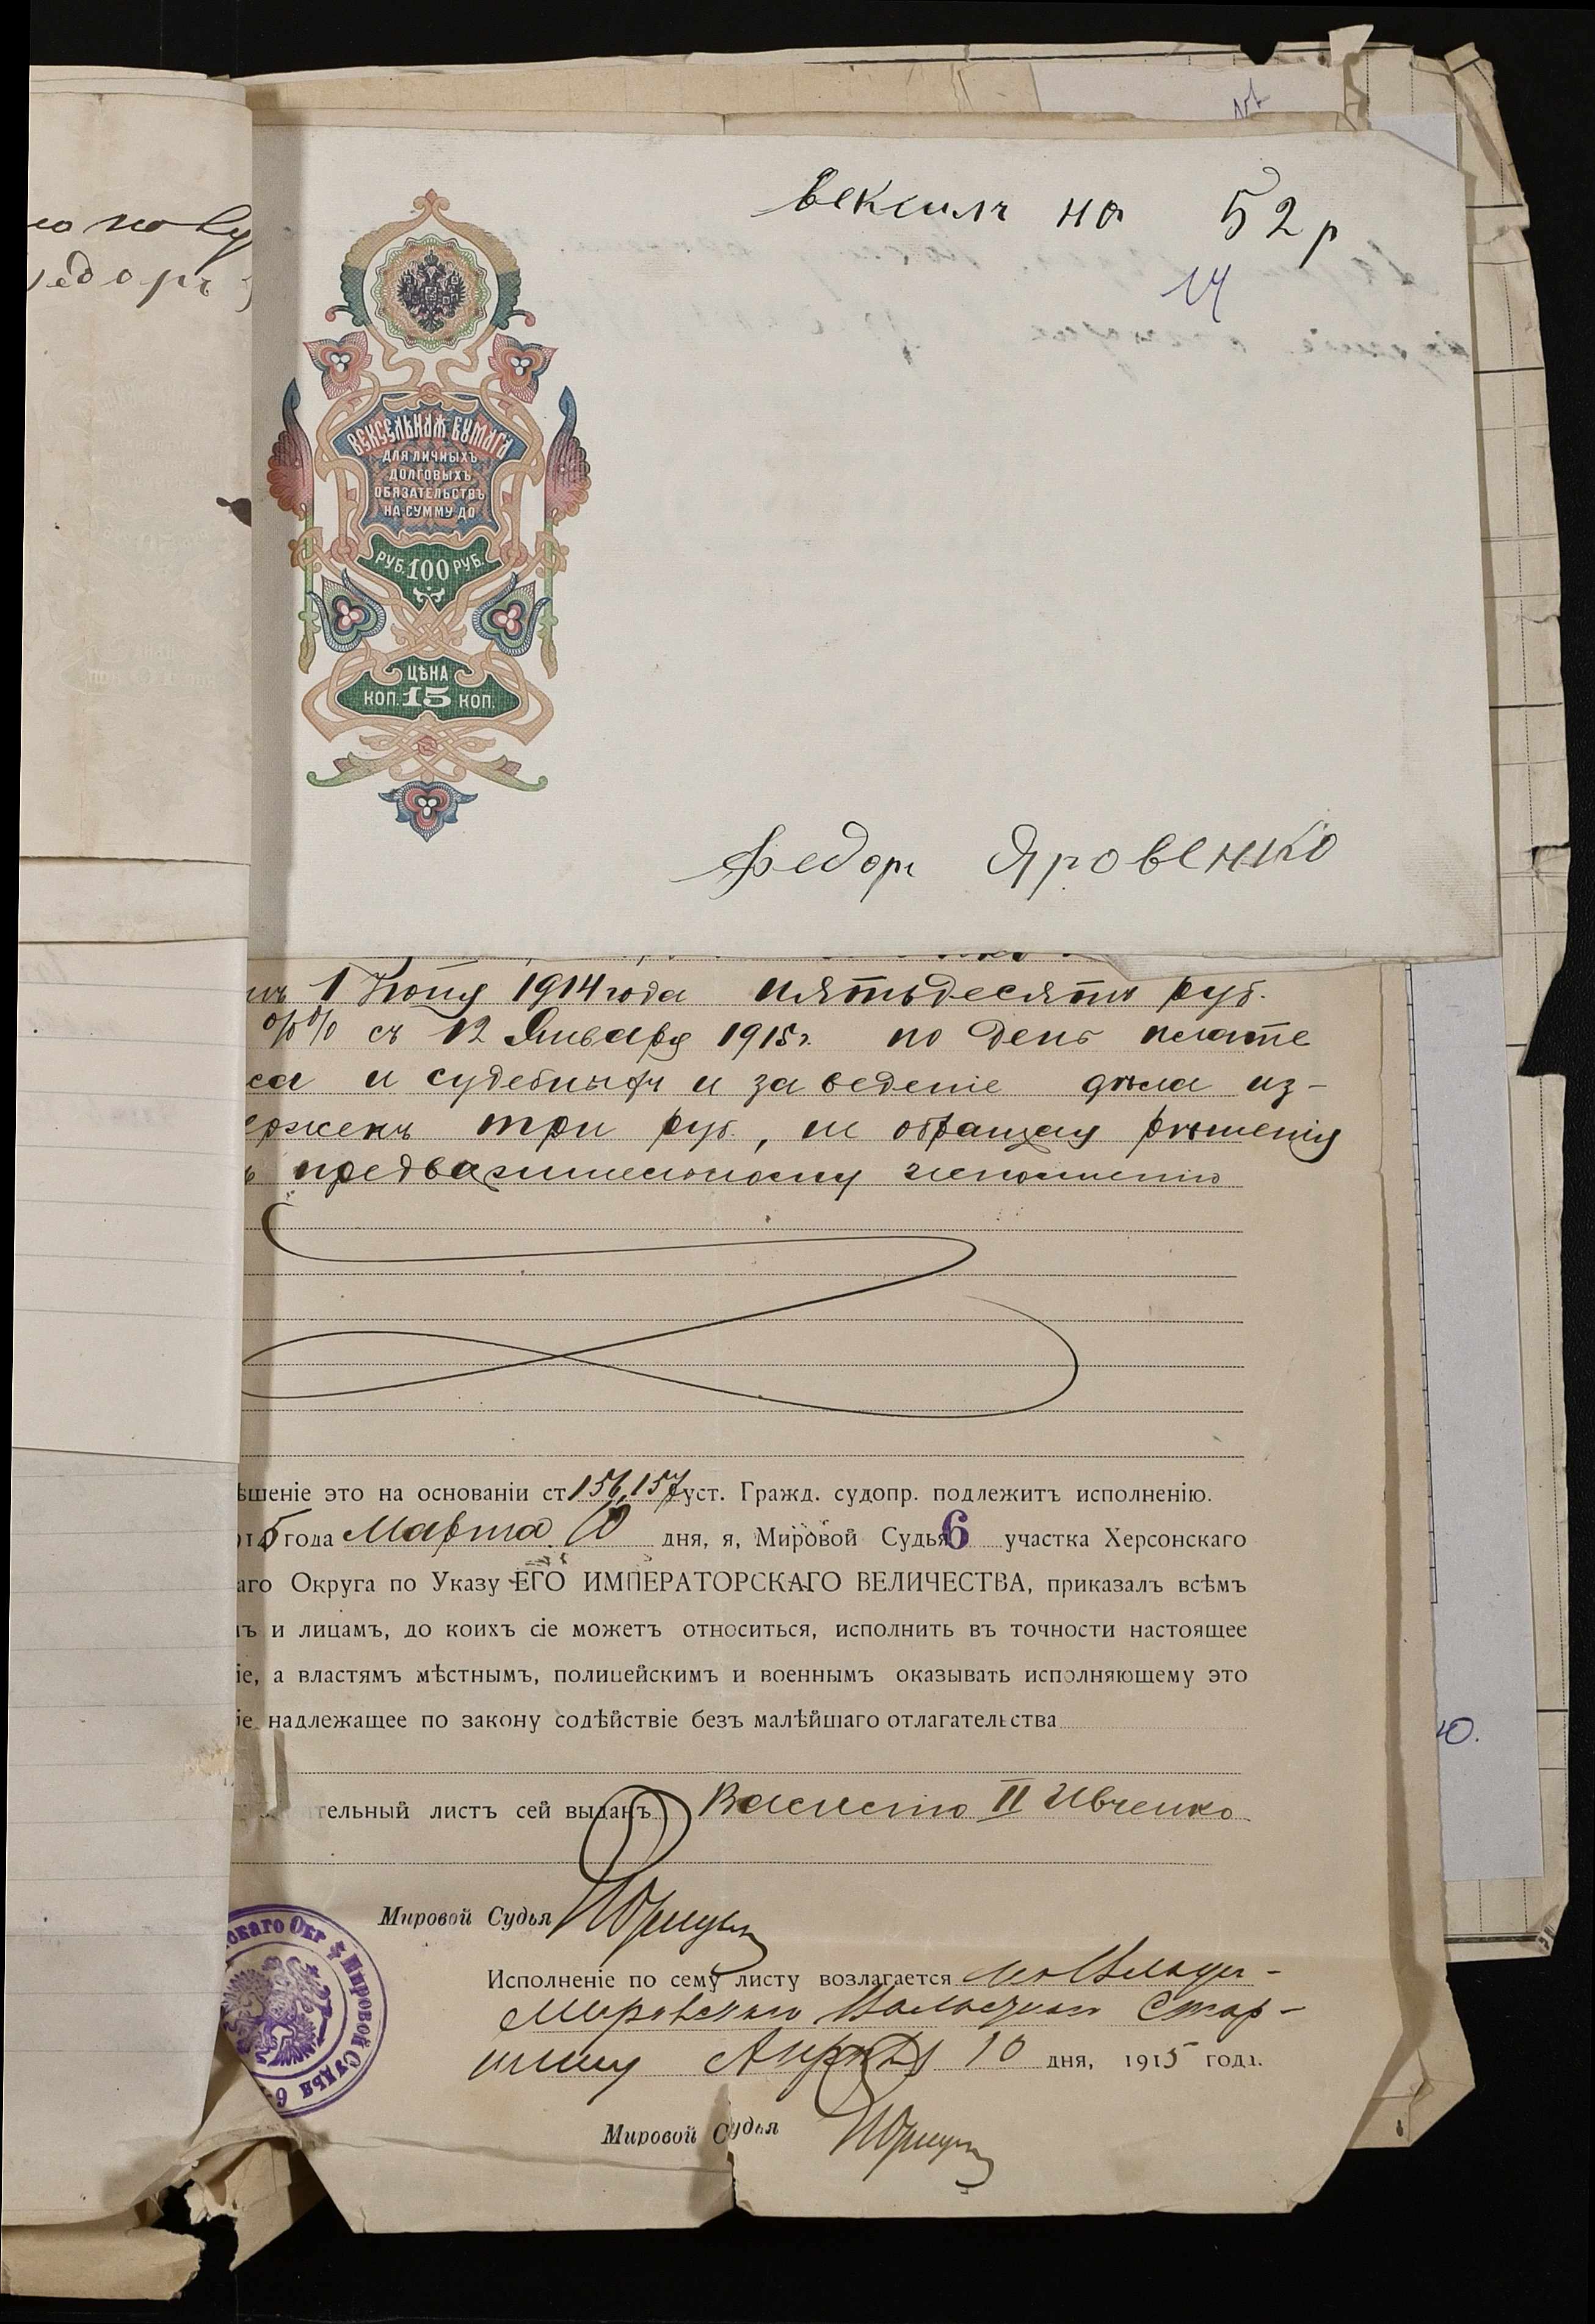 вексиль на 52 р
14
ВЕКСЕЛЬНАЯ БУМАГА
ДЛЯ ЛИЧНЫХЪ
ДОЛГОВЫХЪ
ОБЯЗАТЕЛЬСТВЪ
НА СУММУ ДО
РУБ. 100 РУБ.
ЦѢНА
КОП. 15 КОП.
Федоръ Яровенко
1 Іюня 1914 года пятьдесятъ руб.
%% съ 12 Января 1915 г. по день плате
са и судебныхъ и за веденіе дѣла из-
ержекъ три руб., не обращая рѣшенія
предварительному исполненію
ѣшеніе это на основаніи ст 156, 157 уст. Гражд. судопр. подлежитъ исполненію.
915 года Марта 10 дня, я, Мировой Судья 6 участка Херсонскаго
аго Округа по Указу ЕГО ИМПЕРАТОРСКАГО ВЕЛИЧЕСТВА, приказалъ всѣмъ
ъ и лицамъ, до коихъ сіе можетъ относиться, исполнить въ точности настоящее
іе, а властямъ мѣстнымъ, полицейскимъ и военнымъ оказывать исполняющему это
іе надлежащее по закону содѣйствіе безъ малѣйшаго отлагательства
тельный листъ сей выданъ Василію II Ивченко
Мировой Судья
скаго Окр Мировой Судья 6
Исполненіе по сему листу возлагается на Влади-
мировскаго Волостного Стар-
шину Апрѣля 10 дня, 1915 года.
Мировой Судья
ю.